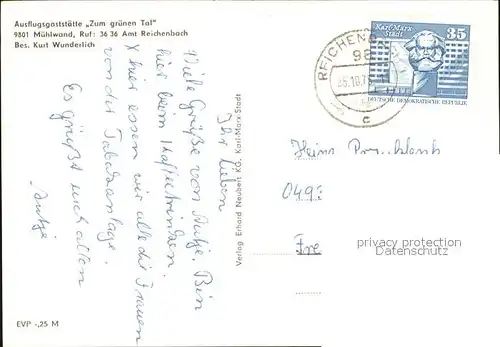 Ausflugsgaststätte „Zum grünen Tal"
9801 Mühlwand, Ruf: 36 36 Amt Reichenbach
Bes. Kurt Wunderlich
Ihr Lieben
Viele Grüße von Antje. Bin
hier beim Kaffeetrinken.
X hier essen wir alle die Frauen
von der Tabakanlage.
Es grüßt euch allen
Antje
EVP -,25 M
Verlag Erhard Neubert KG, Karl-Marx-Stadt
REICHENB
98
c
Karl-Marx-
Stadt
35
DEUTSCHE DEMOKRATISCHE REPUBLIK
Heinz
049
Fre
privacy protection
Datenschutz